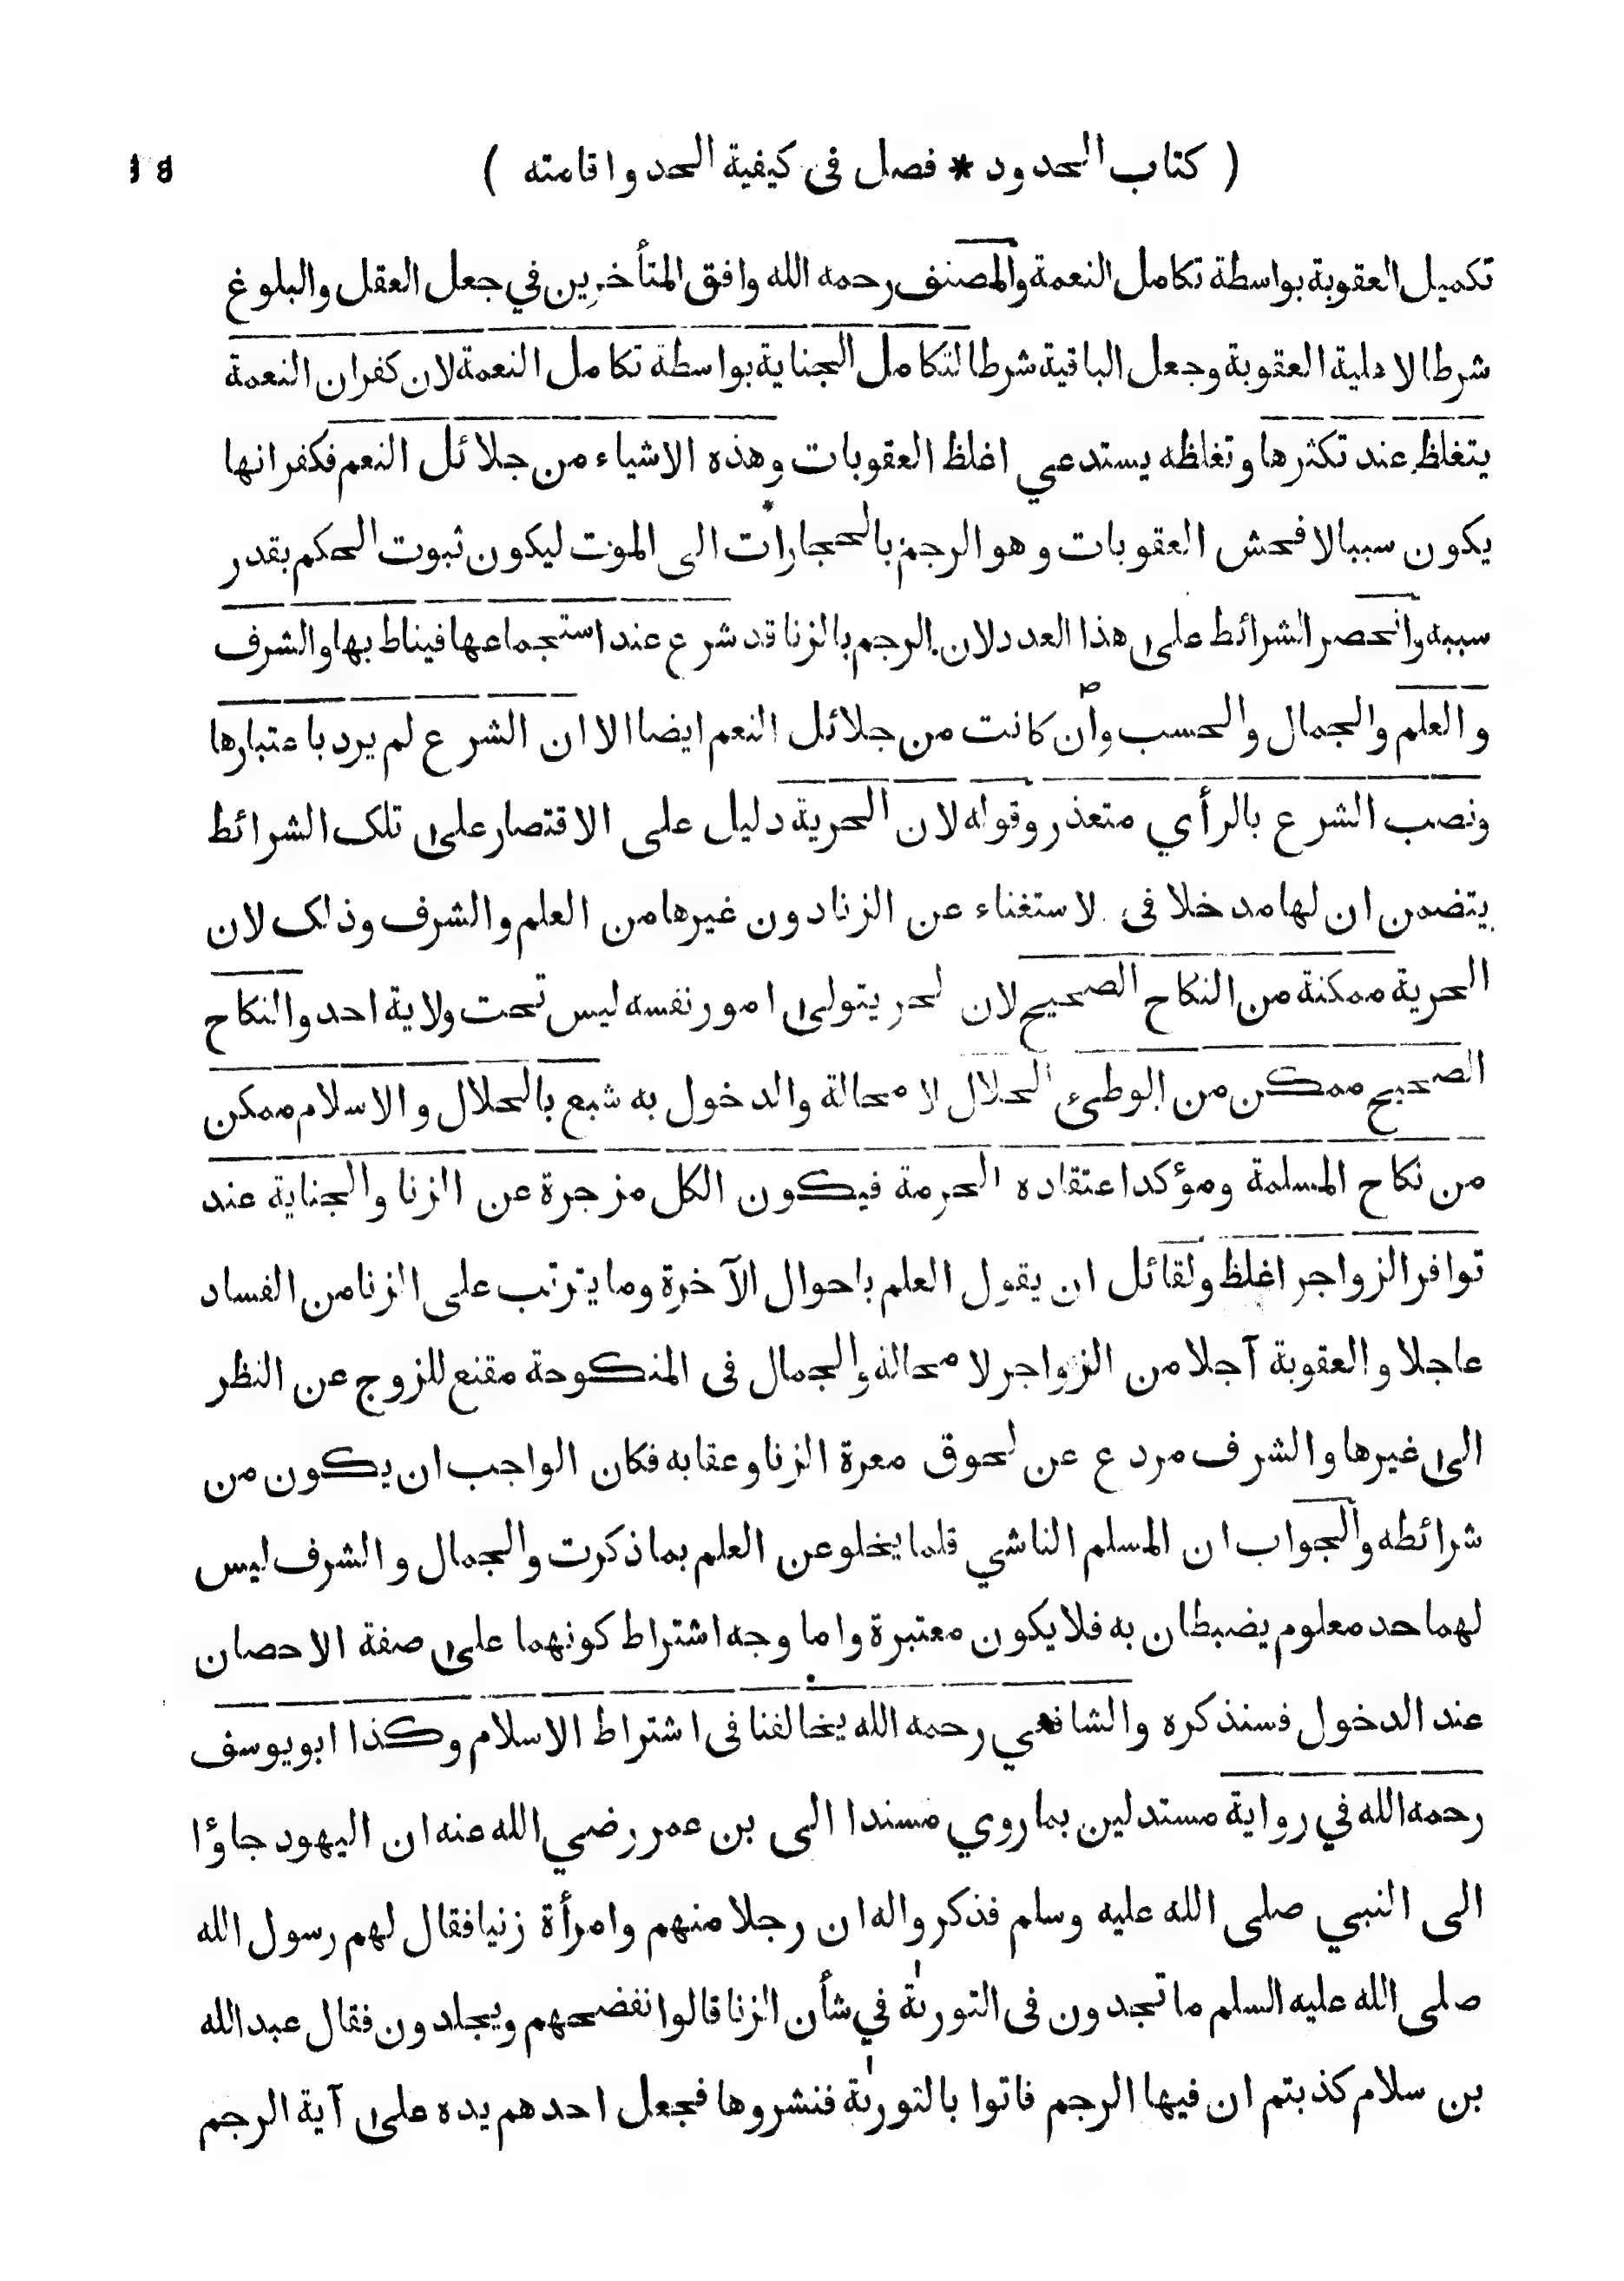 ( كتاب الحدود * فصل فى كيفية الحد واقامته )
تكميل العقوبة بواسطة تكامل النعمة والمصنف رحمه الله وافق المتأخرين في جعل العقل والبلوغ
شرطا لاهلية العقوبة وجعل الباقية شرطا لتكامل الجناية بواسطة تكامل النعمة لان كفران النعمة
يتغلظ عند تكثرها وتغلظه يستدعي اغلظ العقوبات وهذه الاشياء من جلائل النعم فكفرانها
يكون سببا لافحش العقوبات وهو الرجم بالحجارات الى الموت ليكون ثبوت الحكم بقدر
سببه وانحصر الشرائط على هذا العدد لان الرجم بالزنا قد شرع عند استجماعها فيناط بها والشرف
والعلم والجمال والحسب وان كانت من جلائل النعم ايضا الا ان الشرع لم يرد باعتبارها
ونصب الشرع بالرأي متعذر وقوله لان الحرية دليل على الاقتصار على تلك الشرائط
يتضمن ان لها مدخلا فى لاستغناء عن الزنا دون غيرها من العلم والشرف وذلك لان
الحرية ممكنة من النكاح الصحيح لان لحر يتولى امور نفسه ليس تحت ولاية احد والنكاح
الصحيح ممكن من الوطئ الحلال لا محالة والدخول به شبع بالحلال والاسلام ممكن
من نكاح المسلمة ومؤكد اعتقاده الحرمة فيكون الكل مزجرة عن الزنا والجناية عند
توافر الزواجر اغلظ ولقائل ان يقول العلم باحوال الآخرة وما يترتب على الزنا من الفساد
عاجلا والعقوبة آجلا من الزواجر لا محالة والجمال فى المنكوحة مقنع للزوج عن النظر
الى غيرها والشرف مردع عن لحوق معرة الزنا وعقابه فكان الواجب ان يكون من
شرائطه والجواب ان المسلم الناشي قلما يخلو عن العلم بما ذكرت والجمال والشرف ليس
لهما حد معلوم يضبطان به فلا يكون معتبرة واما وجه اشتراط كونهما على صفة الاحصان
عند الدخول فسنذكره والشافعي رحمه الله يخالفنا فى اشتراط الاسلام وكذا ابويوسف
رحمه الله في رواية مستدلين بما روي مسندا الى بن عمر رضي الله عنه ان اليهود جاؤا
الى النبي صلى الله عليه وسلم فذكروا له ان رجلا منهم وامرأة زنيا فقال لهم رسول الله
صلى الله عليه السلم ما تجدون فى التورىة في شأن الزنا قالوا نفضحهم ويجلدون فقال عبدالله
بن سلام كذبتم ان فيها الرجم فاتوا بالتورىة فنشروها فجعل احدهم يده على آية الرجم